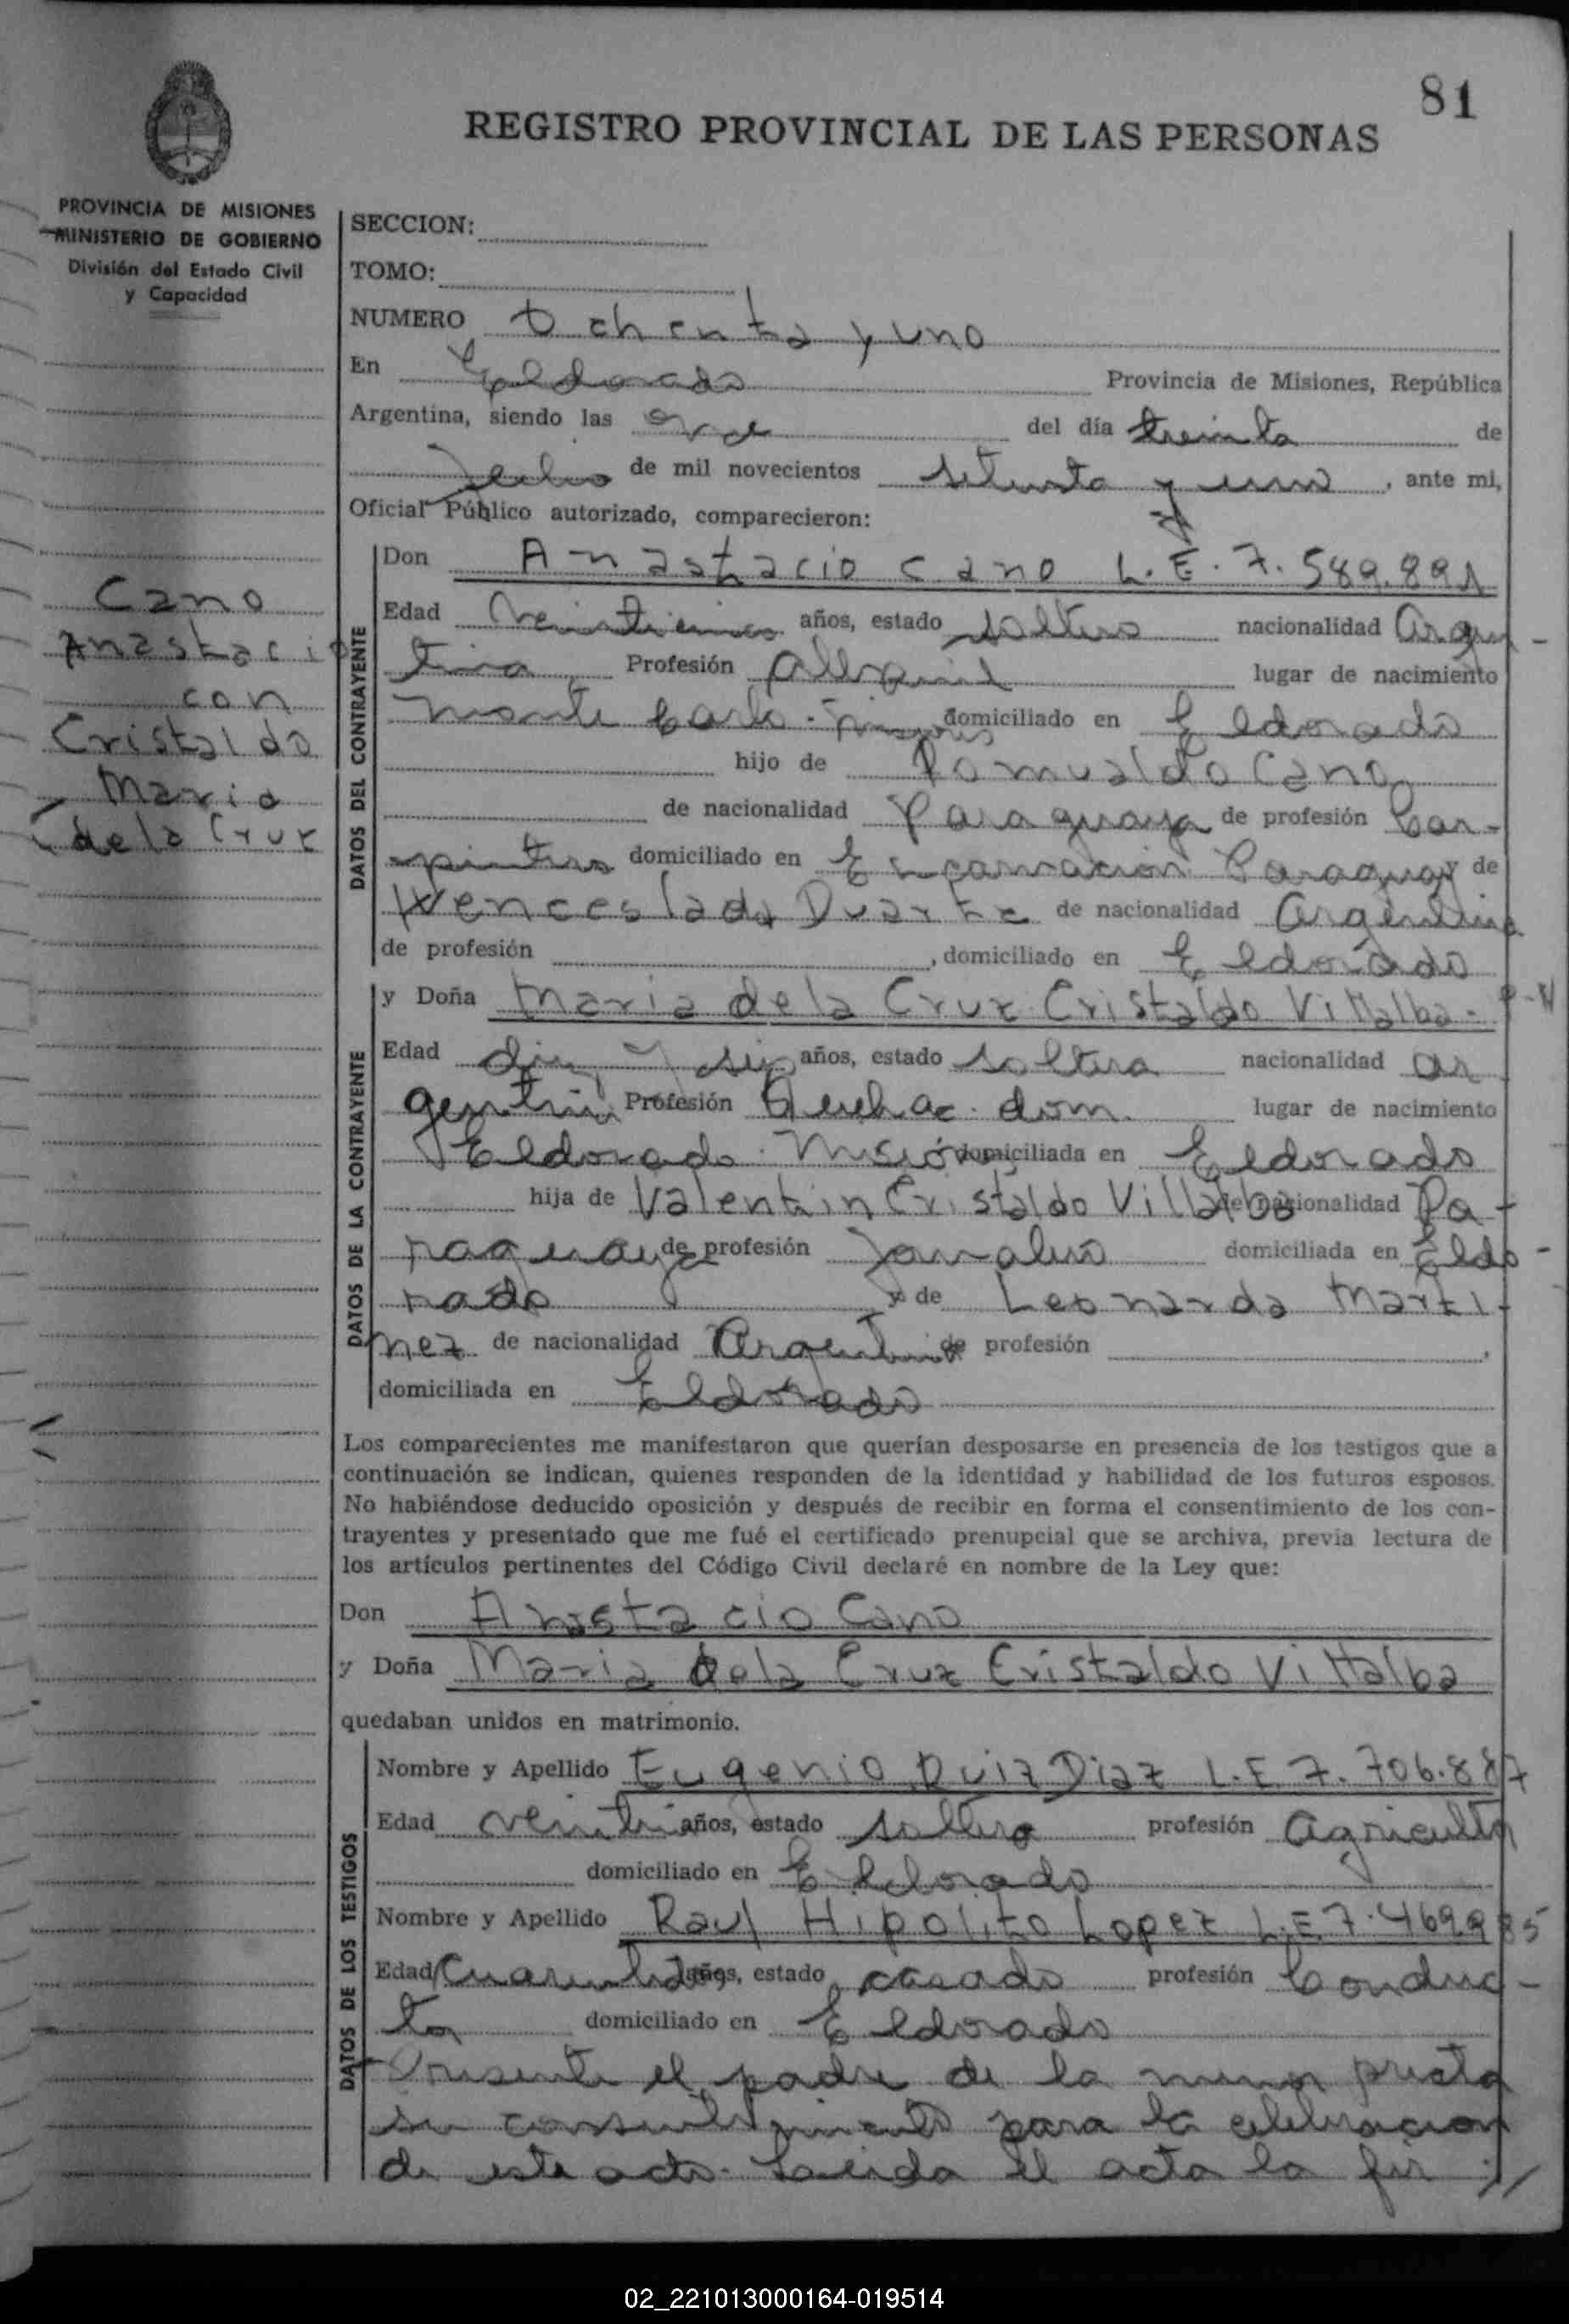 81
REGISTRO PROVINCIAL DE LAS PERSONAS
PROVINCIA DE MISIONES
MINISTERIO DE GOBIERNO
División del Estado Civil
y Capacidad
Cano
Anastacio
con
Cristaldo
Maria
de la Cruz
SECCION:
TOMO:
NUMERO Ochenta y uno
En Eldorado Provincia de Misiones, República
Argentina, siendo las once del día treinta de
Julio de mil novecientos setenta y uno, ante mi,
Oficial Público autorizado, comparecieron:
DATOS DEL CONTRAYENTE
Don Anastacio Cano L.E. 7.589.891
Edad veinticinco años, estado soltero nacionalidad Argen-
tina Profesión Albañil lugar de nacimiento
Monte Carlo. Misiones domiciliado en Eldorado
hijo de Romualdo Cano
de nacionalidad Paraguaya de profesión Car-
pintero domiciliado en Encarnación Paraguay y de
Wenceslada Duarte de nacionalidad Argentina
de profesión , domiciliado en Eldorado
DATOS DE LA CONTRAYENTE
y Doña Maria de la Cruz Cristaldo Villalba.
Edad diez y seis años, estado soltera nacionalidad Ar
gentina Profesión Quehac. dom. lugar de nacimiento
Eldorado. Misiones domiciliada en Eldorado
hija de Valentin Cristaldo Villalba de nacionalidad Pa-
raguaya de profesión Jornalero domiciliada en Eldo-
rado y de Leonarda Marti-
nez de nacionalidad Argentina de profesión ,
domiciliada en Eldorado
Los comparecientes me manifestaron que querían desposarse en presencia de los testigos que a
continuación se indican, quienes responden de la identidad y habilidad de los futuros esposos.
No habiéndose deducido oposición y después de recibir en forma el consentimiento de los con-
trayentes y presentado que me fué el certificado prenupcial que se archiva, previa lectura de
los artículos pertinentes del Código Civil declaré en nombre de la Ley que:
Don Anastacio Cano
y Doña Maria de la Cruz Cristaldo Villalba
quedaban unidos en matrimonio.
DATOS DE LOS TESTIGOS
Nombre y Apellido Eugenio Ruiz Diaz L.E. 7.706.887
Edad años, estado soltero profesión Agricultor
domiciliado en Eldorado
Nombre y Apellido Raul Hipolito Lopez L.E 7.469985
Edad años, estado casado profesión Conduc-
tor domiciliado en Eldorado
Presente el padre de la menor presta
su consentimiento para la celebracion
de este acto. Leida el acta la fir //
02_221013000164-019514